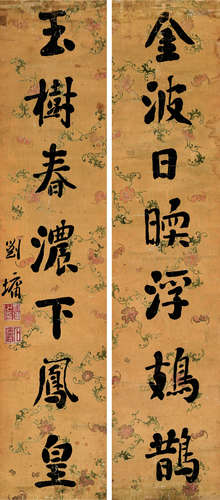 金波日暎浮鳷鵲
玉樹春濃下鳳皇
劉墉